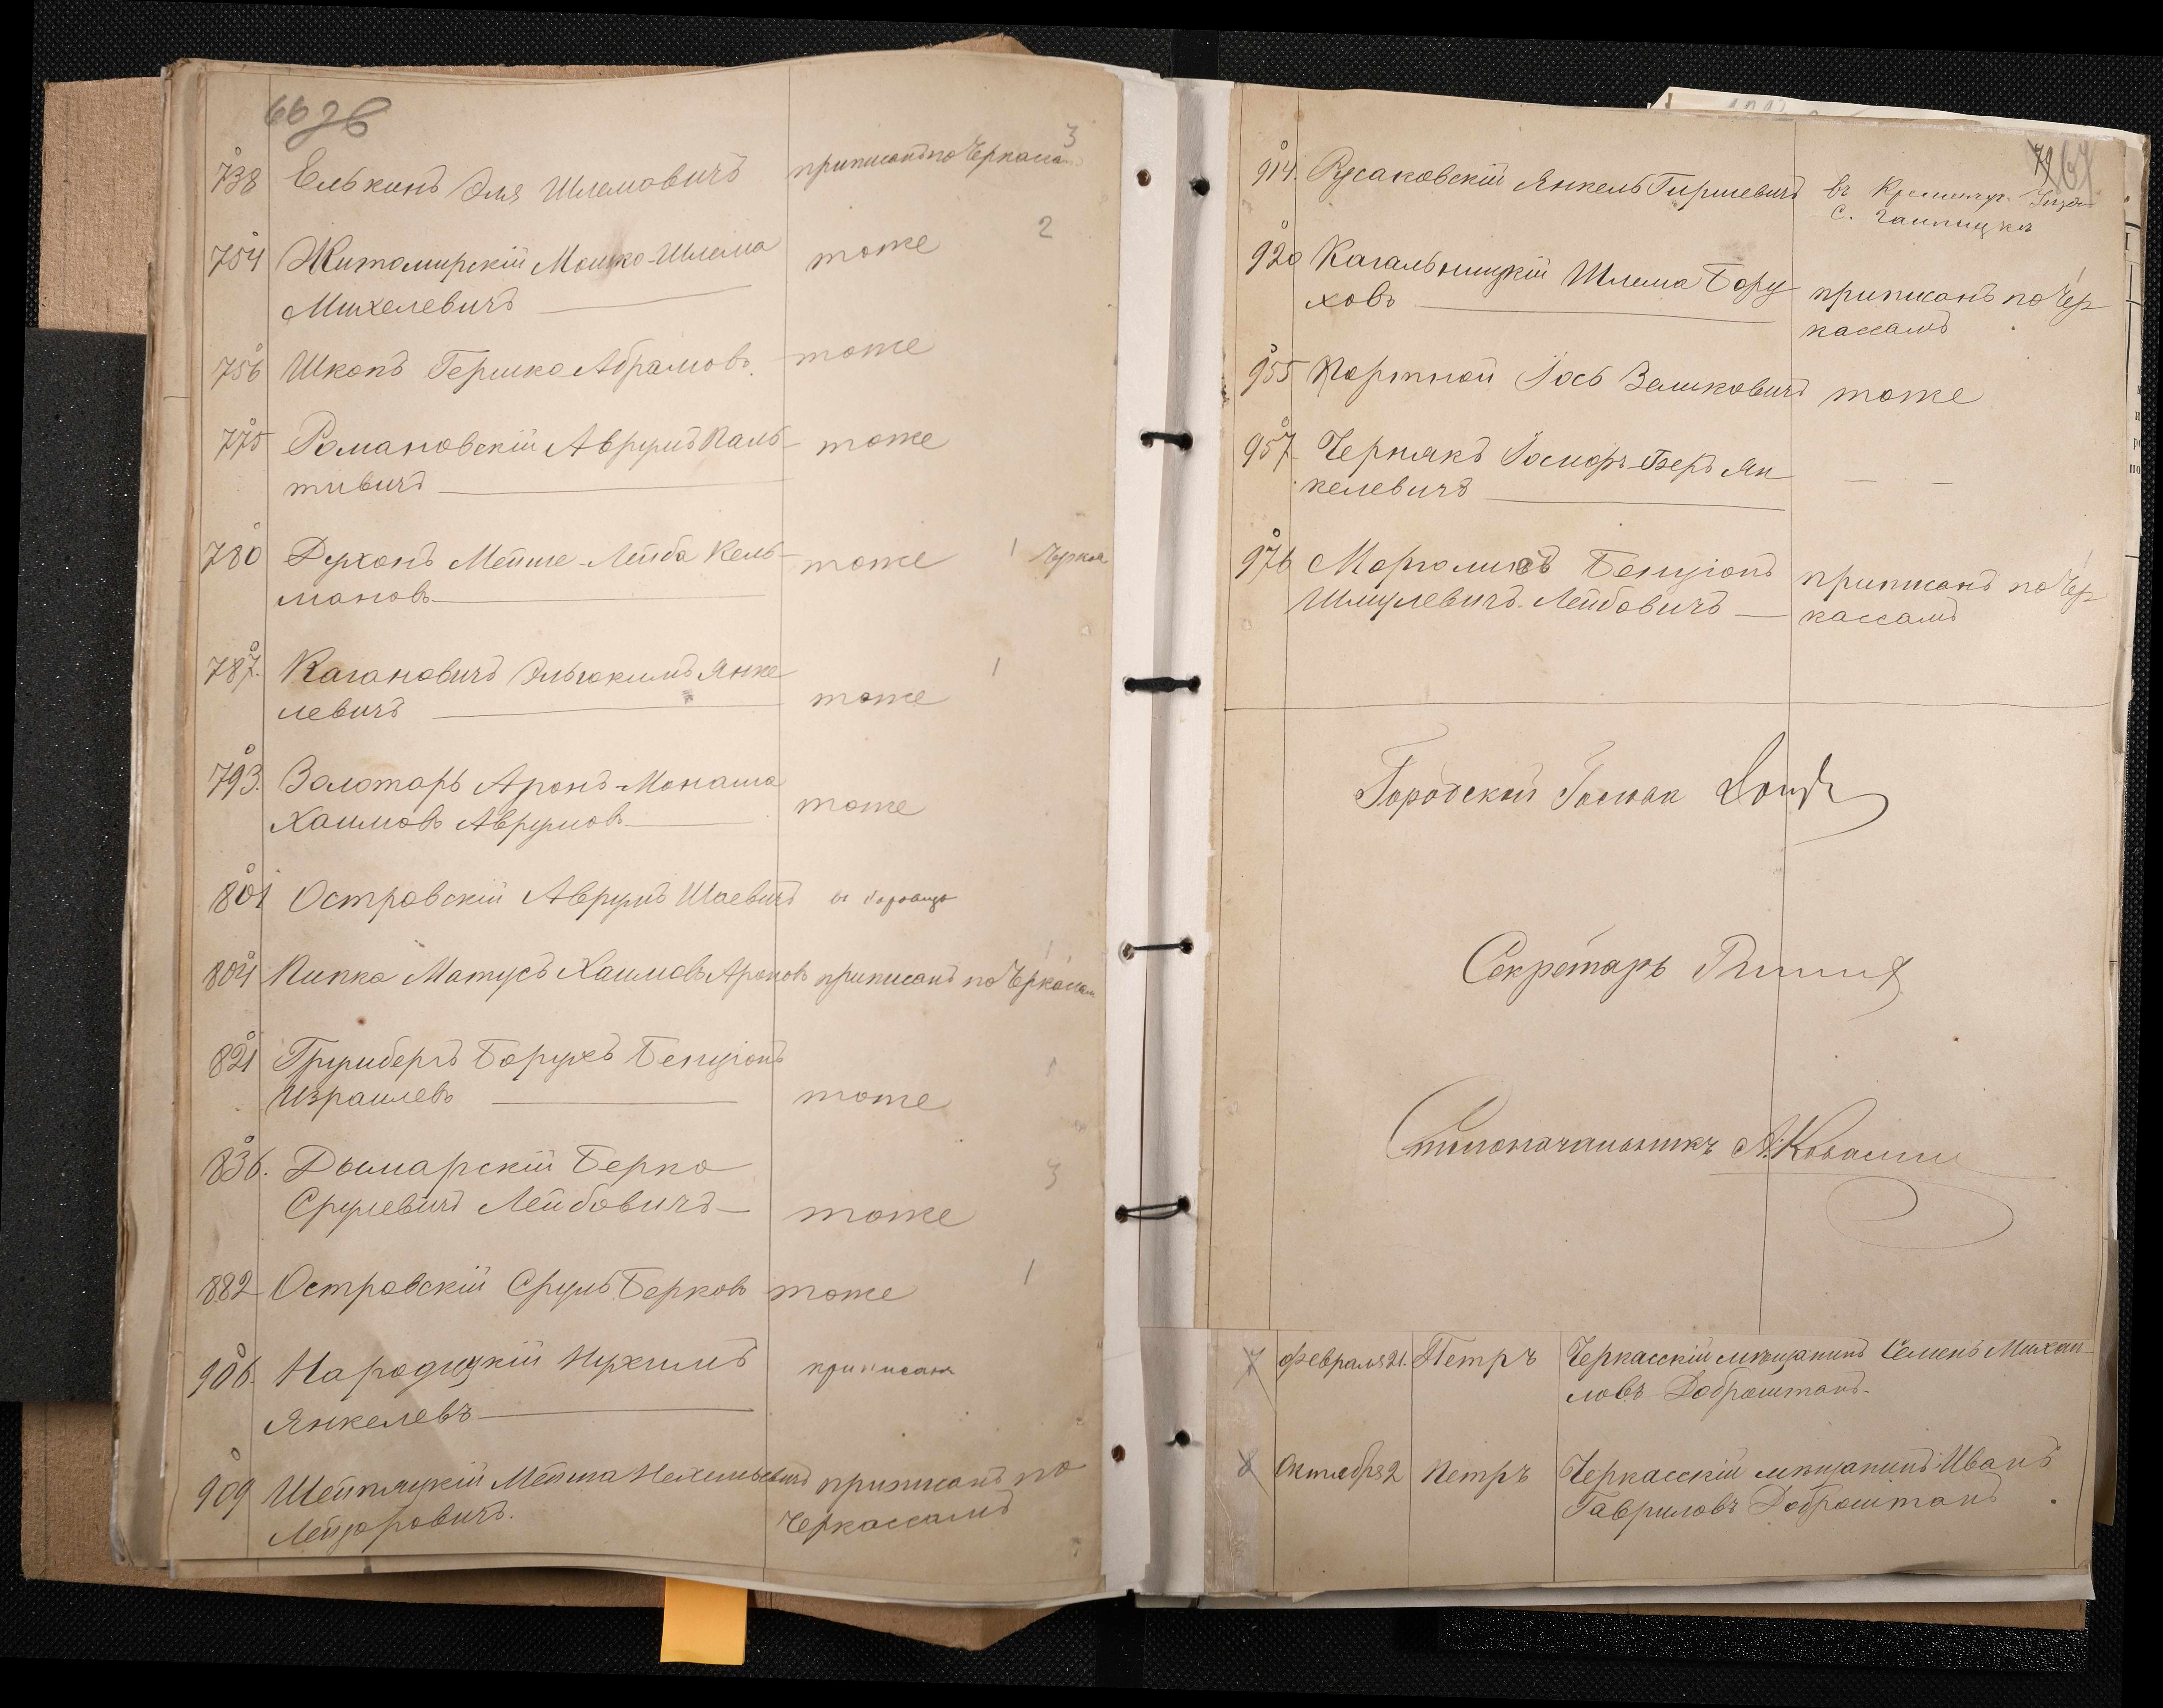 66 зв
738 Елькинъ Эля Шлемовичъ приписанъ по Черкассамъ 3
754 Житомирскій Мошко-Шлема тоже 2
Михелевичъ
756 Школъ Гершко Абрамовъ тоже
775 Романовскій Аврумъ Паль- тоже
тивичъ
780 Духонъ Мейше-Лейба Кель- тоже 1 Черкас
мановъ
787. Кагановичъ Эльюкимъ Янке
левичъ тоже 1
793. Золотарь Аронъ-Монаша
Хаимовъ Аврумовъ тоже
801 Островскій Аврумъ Шаевичъ
804 Пипко Матусъ Хаимовъ Ароновъ приписанъ по Черкассам 1
821 Грумбергъ Борухъ Бенціонъ 1
Израилевъ тоже
836. Дымарскій Берко 3
Срулевичъ Лейбовичъ тоже
882 Островскій Сруль Берковъ тоже 1
906. Народицкій Нухимъ приписан
Янкелевъ
909 Шейпяцкій Мейша Нехемьевичъ приписанъ по
Лейзоровичъ. Черкассамъ
79 67
914. Русаковскій Янкель Гиршевичъ въ Кременчуг.
с.
920 Кагальницкій Шлема Бору приписанъ по Чер 1
ховъ кассамъ
955 Портной Іось Зеликовичъ тоже
957 Чернякъ Іосифъ-Беръ Ян — —
келевичъ
976 Морголисъ Бенціонъ приписанъ по Чер 1
Шмулевичъ Лейбовичъ кассамъ
Городской Голова
Секретарь
Столоначальникъ А. Ковалик
7 Февраля 21. Петръ Черкасскій мѣщанинъ Семенъ Михаи
ловъ Доброштанъ.
8 Октября 2 Петръ Черкасскій мѣщанинъ Иванъ
Гавриловъ Доброштанъ.